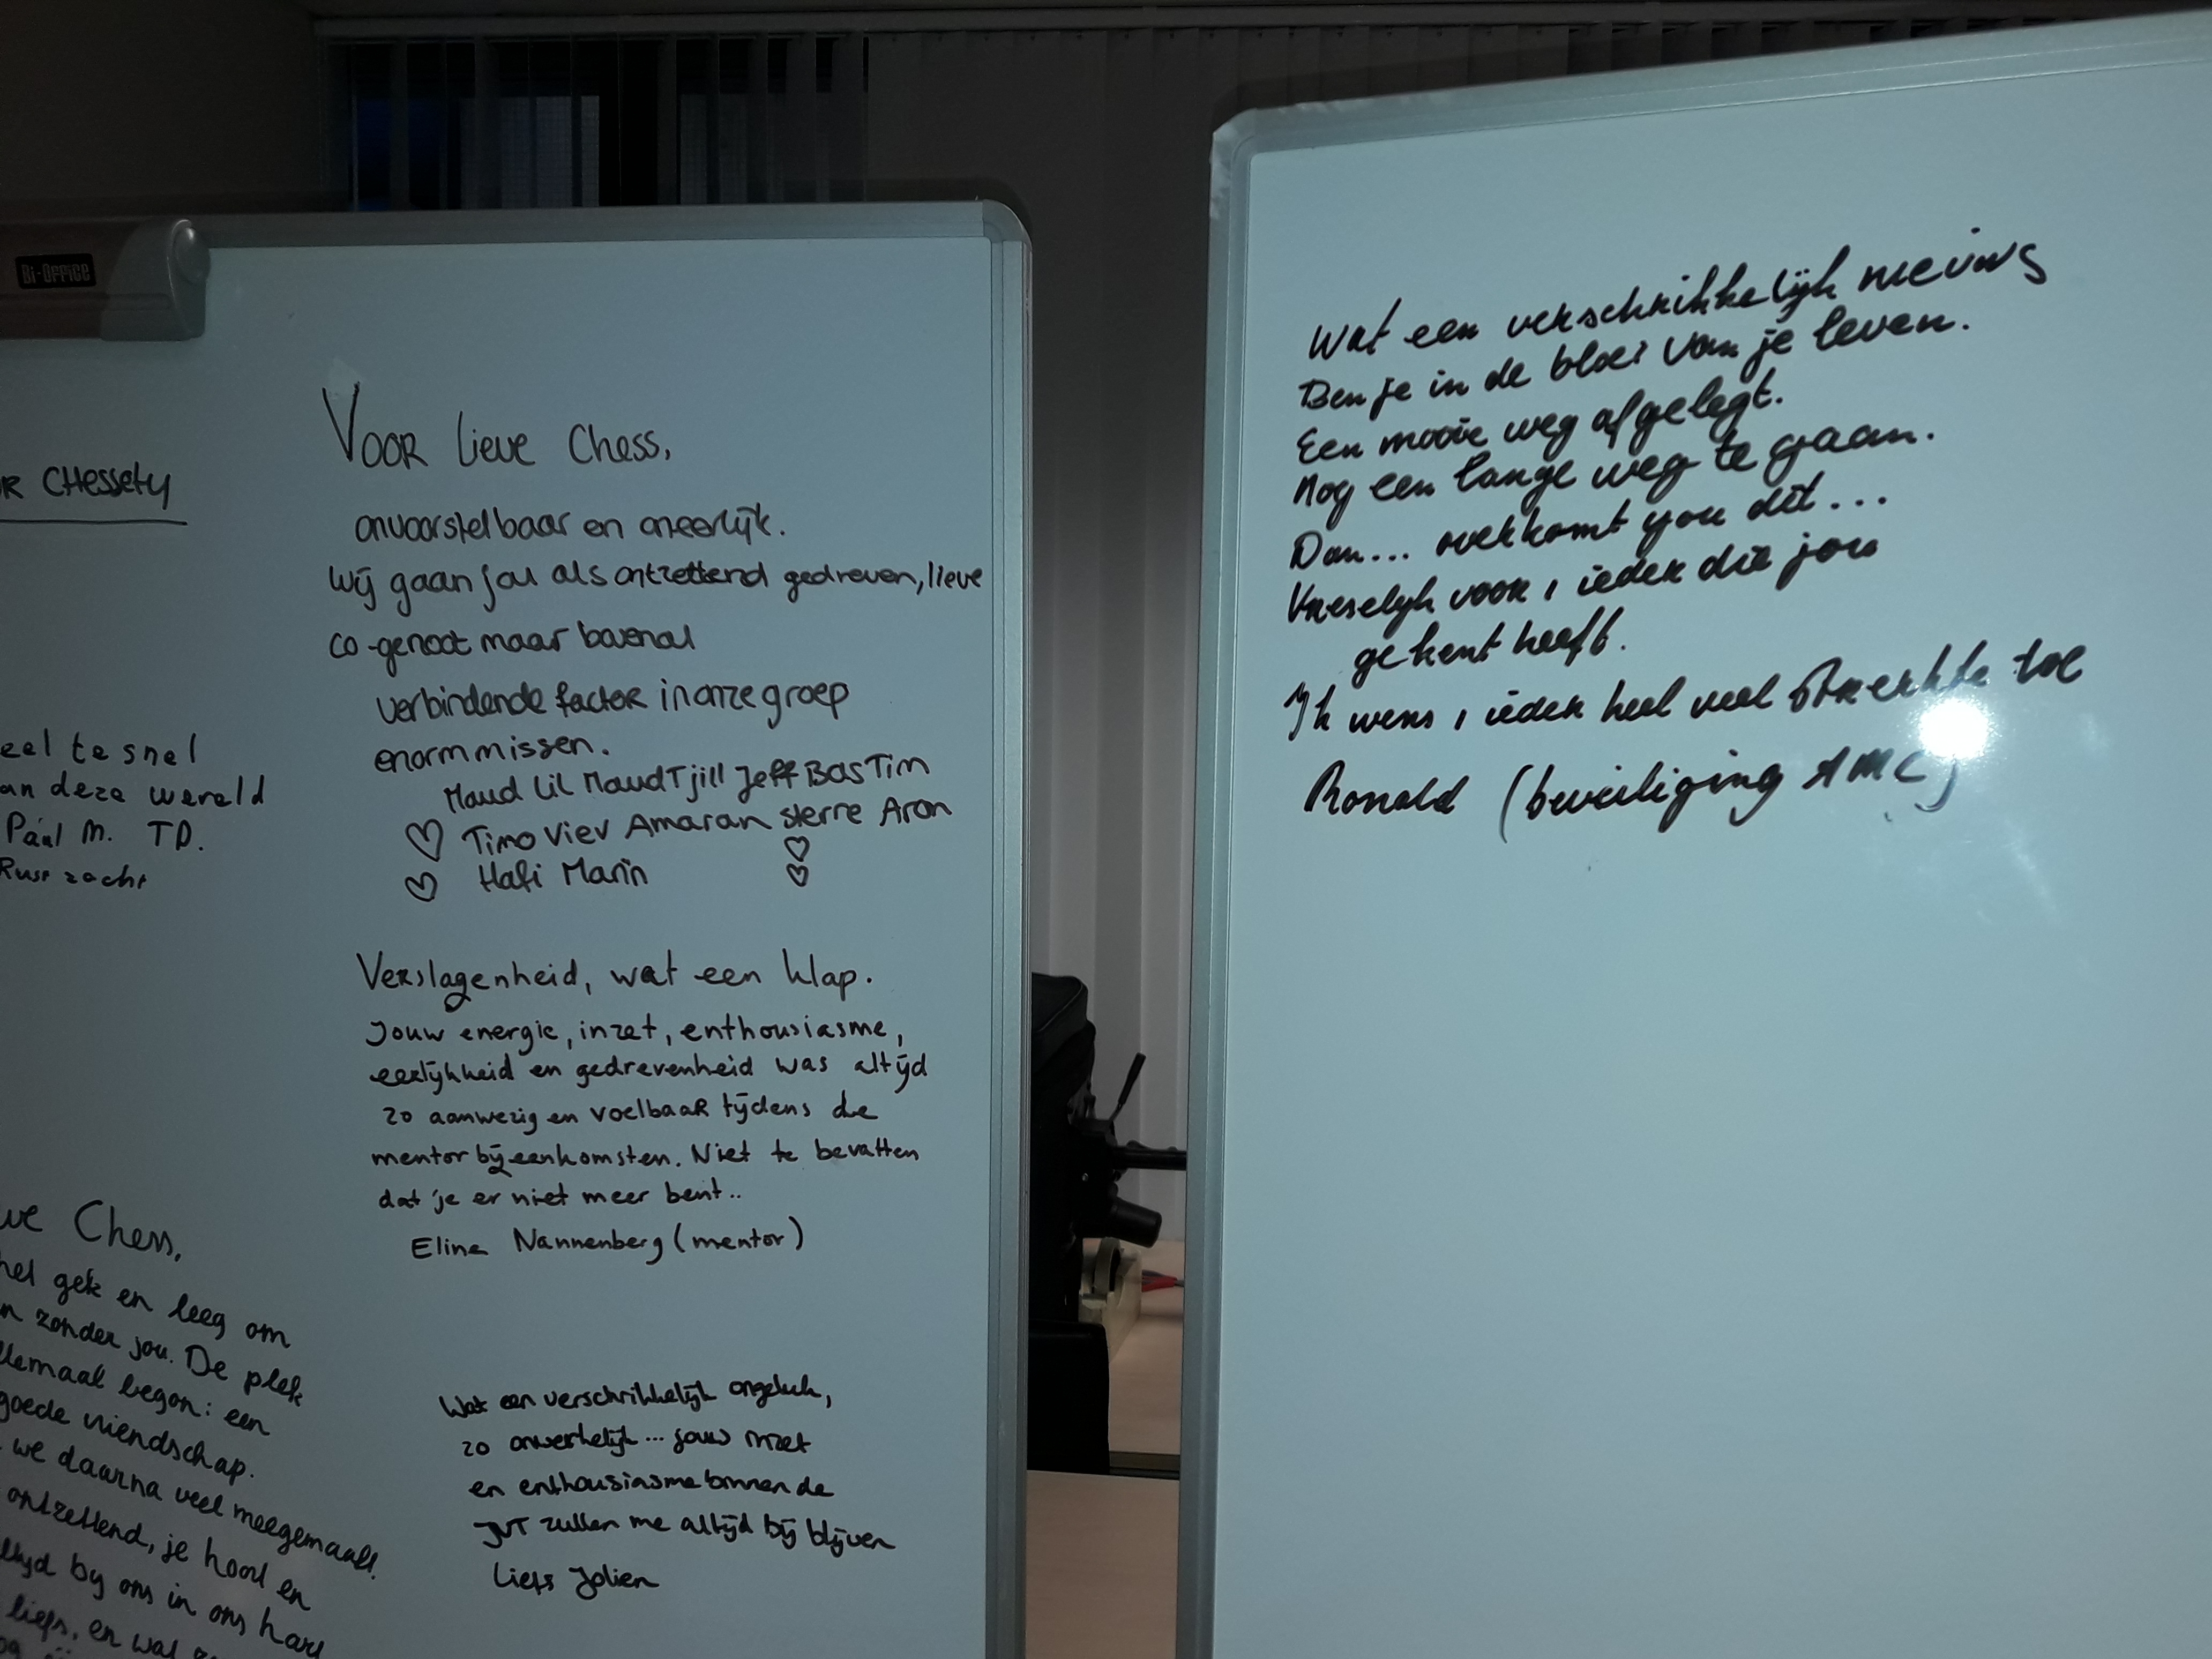 Bi-Office
R CHessely
eel te snel
an deze wereld
Paul M. TD.
Rust zacht
ve Chess,
hel gek en leeg om
n zonder jou. De plek
llemaal begon: een
goede vriendschap.
we daarna veel meegemaakt!
ontzettend, je hoort en
altijd bij ons in ons hart
liefs, en wat
Voor lieve Chess,
onvoorstelbaar en oneerlijk.
Wij gaan jou als ontzettend gedreven, lieve
co-genoot maar bovenal
verbindende factor in onze groep
enorm missen.
Maud Lil Maud Tjill Jeff Bas Tim
Timo Viev Amaran Sterre Aron
Hafi Marin
Verslagenheid, wat een klap.
Jouw energie, inzet, enthousiasme,
eerlijkheid en gedrevenheid was altijd
zo aanwezig en voelbaar tijdens de
mentorbijeenkomsten. Niet te bevatten
dat je er niet meer bent..
Eline Nannenberg (mentor)
Wat een verschrikkelijk ongeluk,
zo onwerkelijk... jouw inzet
en enthousiasme binnen de
JVT zullen me altijd bij blijven
Liefs Jolien
Wat een verschrikkelijk nieuws
Ben je in de bloei van je leven.
Een mooie weg afgelegt.
Nog een lange weg te gaan.
Dan... overkomt you dit...
Vreselijk voor 1 ieder die jou
gekent heeft.
Ik wens 1 ieder heel veel sterkte toe
Ronald (beveiliging AMC)